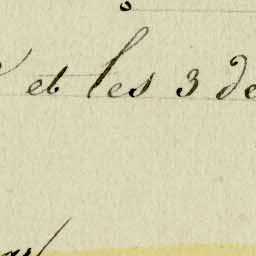 et les 3 de